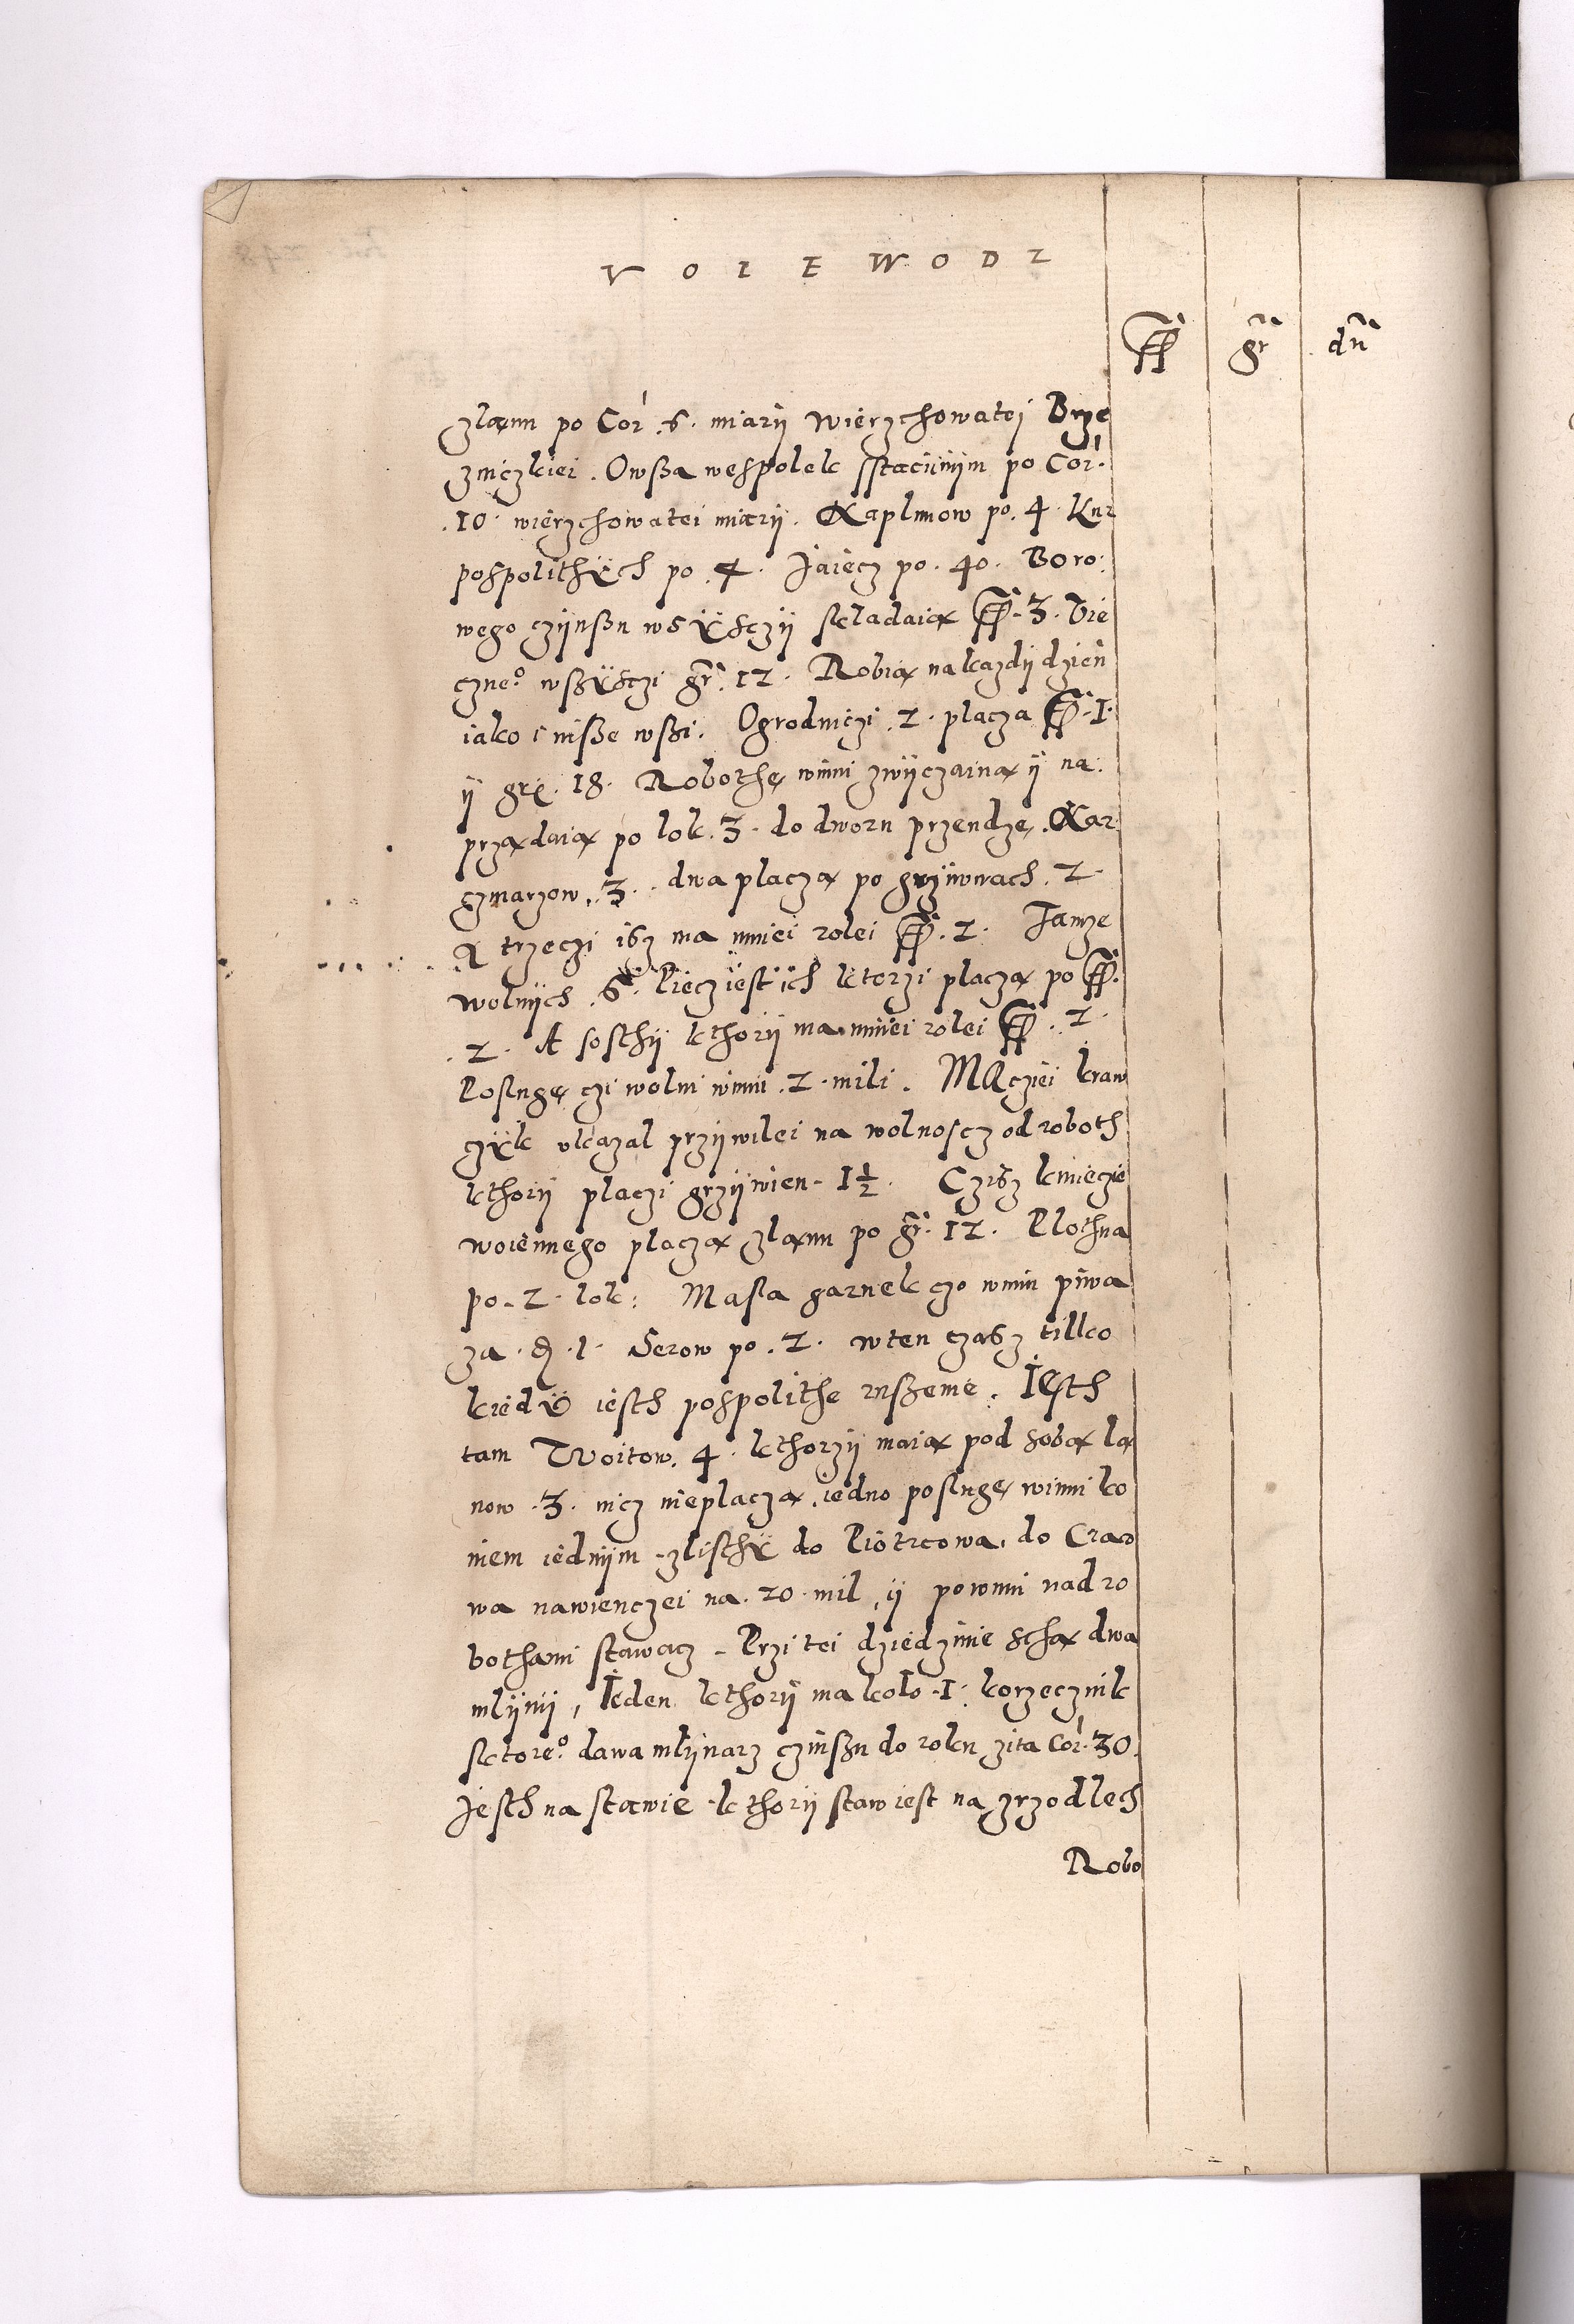 VOIEWODZ
gr dn
zlanu po Cor. 6. miarÿ wierzchowatej Brze
zniczkiei. Owßa wespolek sstaciinÿm po Cor.
.10. wierzchowatei miarÿ. Kaplunow po. 4. Kur
pospolithÿch po .4. Jaiecz po. 40. Boro:
wego czÿnßu wsÿsczÿ skladaią 3. Vie
czne° wßÿsczi gr. 12. Robią na kazdÿ dzień
iako i nisße wßi. Ogrodniczi .2. placza .1.
ÿ gr. 18. Robothę winni zwÿczainą ÿ na:
prządaią po lok. 3. do dworu przendzę. Kar
czmarzow. 3. dwa placzą po grzÿwnach. 2.
A trzeczi isz ma mniei rolei .2. Tamze
wolnÿch .6. Piecz iest ich ktorzi placzą po
.2. A sosthÿ kthorÿ ma mniei rolei .2.
Poslugę czi wolni winni .2. mili. MAcziei kraw
czÿk ukazal przÿwilei na wolnoscz od roboth
kthorÿ placzi grzÿwien. 1½. Czisz kmieczie
woiennego placzą zlanu po gr. 12. Plothna
po. 2. lok: Masla garnek czo winni piwa
za . . 1. Serow po. 2. w ten czasz tilko
kiedÿ iesth pospolithe rusßenie. IEsth
tam Woitow. 4. kthorzÿ maią pod sobą la
now .3. nicz nieplaczą. iedno poslugę winni ko
niem iednÿm zlisthÿ do Piotrcowa. do Craco
wa nawienczei na. 20. mil, ÿ powinni nad ro
bothami stawacz. Przi tei dziedzinie schą dwa
mlÿnÿ, Ieden kthorÿ ma kolo .1. korzecznik
sktore° dawa mlÿnarz czinßu do roku zita Cor. 30.
Jesth na stawie kthorÿ staw iest na zrzodlech
Robo